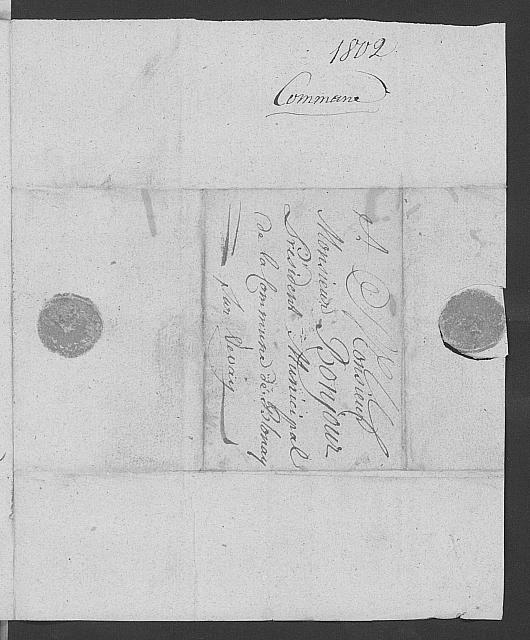 1802
Commune
A Monsieur
Monsieur Bonjour
Président Municipal
de la Commune de Blonay
par Vevay